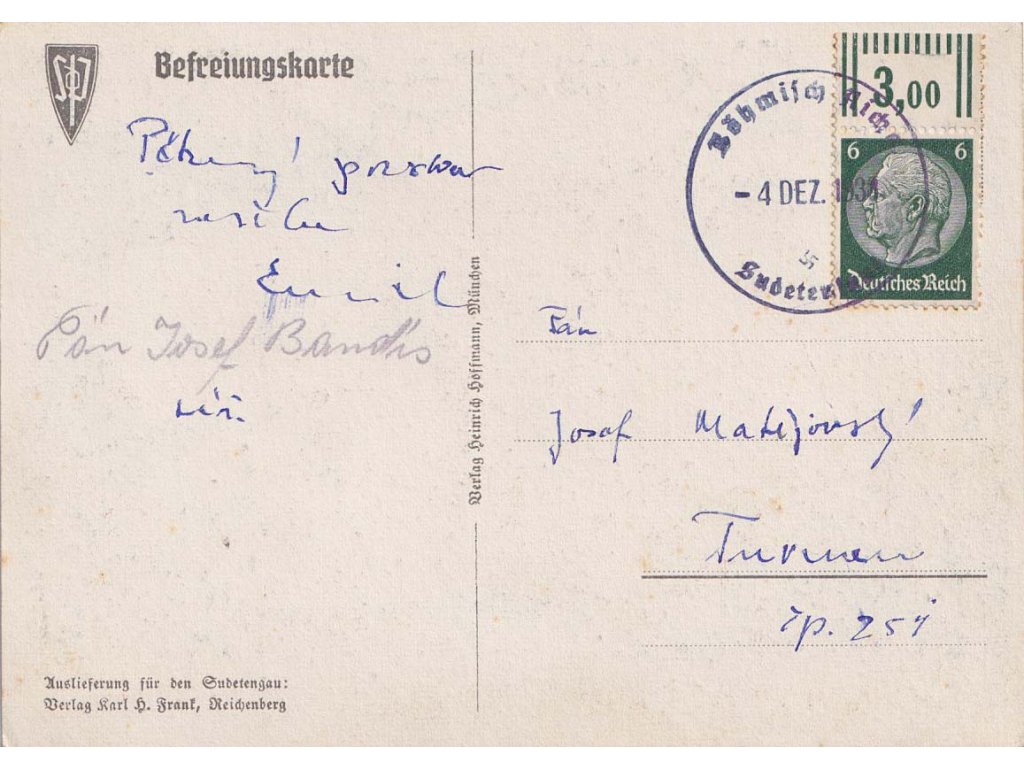 SdP
Befreiungskarte
Pěkný pozdrav
Emil
Pán Josef
Verlag Heinrich Hoffmann, München
Auslieferung für den Sudetengau:
Verlag Karl H. Frank, Reichenberg
3,00
6 6
Deutsches Reich
Böhmisch Aicha
- 4 DEZ. 1938
Pán
Josef Matějovský
Turnov
čp. 251